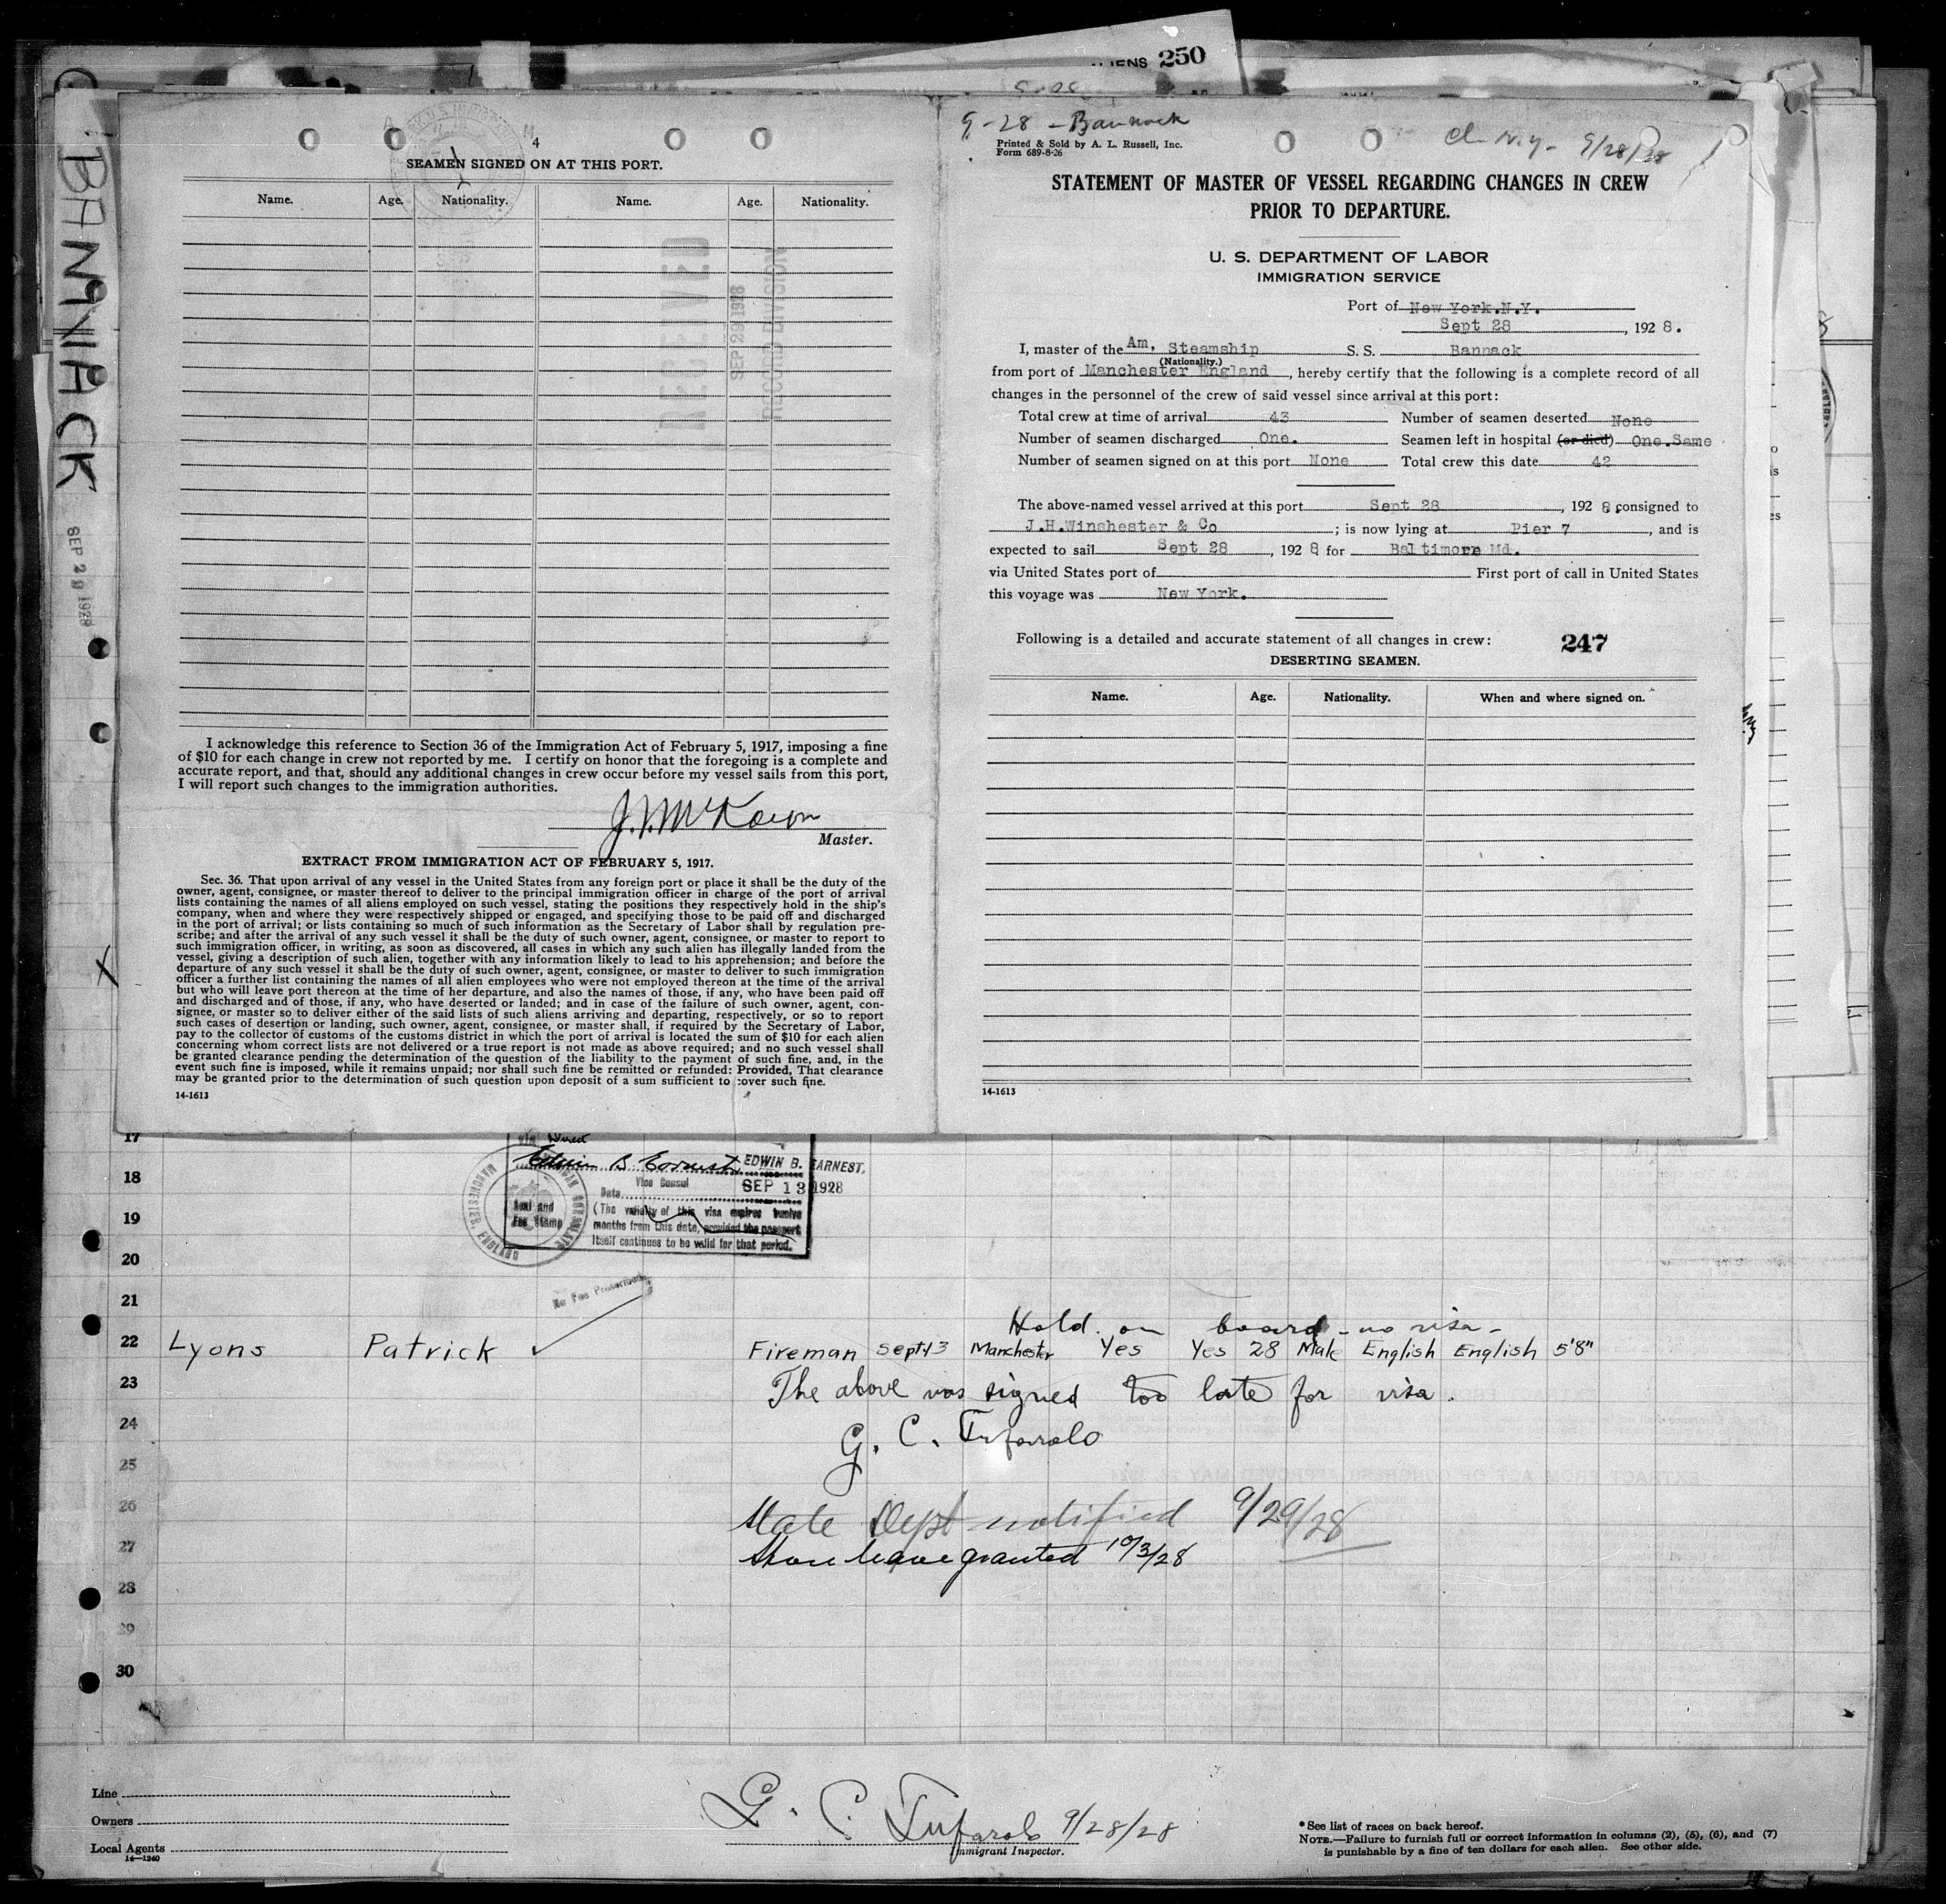 ALIENS 250
BANNACK
SEP 29 1928
4
SEAMEN SIGNED ON AT THIS PORT.
Name. Age. Nationality. Name. Age. Nationality.
RECEIVED
SEP 29 1928
RECORD DIVISION
I acknowledge this reference to Section 36 of the Immigration Act of February 5, 1917, imposing a fine
of $10 for each change in crew not reported by me. I certify on honor that the foregoing is a complete and
accurate report, and that, should any additional changes in crew occur before my vessel sails from this port,
I will report such changes to the immigration authorities.
Master.
EXTRACT FROM IMMIGRATION ACT OF FEBRUARY 5, 1917.
Sec. 36. That upon arrival of any vessel in the United States from any foreign port or place it shall be the duty of the
owner, agent, consignee, or master thereof to deliver to the principal immigration officer in charge of the port of arrival
lists containing the names of all aliens employed on such vessel, stating the positions they respectively hold in the ship's
company, when and where they were respectively shipped or engaged, and specifying those to be paid off and discharged
in the port of arrival; or lists containing so much of such information as the Secretary of Labor shall by regulation pre-
scribe; and after the arrival of any such vessel it shall be the duty of such owner, agent, consignee, or master to report to
such immigration officer, in writing, as soon as discovered, all cases in which any such alien has illegally landed from the
vessel, giving a description of such alien, together with any information likely to lead to his apprehension; and before the
departure of any such vessel it shall be the duty of such owner, agent, consignee, or master to deliver to such immigration
officer a further list containing the names of all alien employees who were not employed thereon at the time of the arrival
but who will leave port thereon at the time of her departure, and also the names of those, if any, who have been paid off
and discharged and of those, if any, who have deserted or landed; and in case of the failure of such owner, agent, con-
signee, or master so to deliver either of the said lists of such aliens arriving and departing, respectively, or so to report
such cases of desertion or landing, such owner, agent, consignee, or master shall, if required by the Secretary of Labor,
pay to the collector of customs of the customs district in which the port of arrival is located the sum of $10 for each alien
concerning whom correct lists are not delivered or a true report is not made as above required; and no such vessel shall
be granted clearance pending the determination of the question of the liability to the payment of such fine, and, in the
event such fine is imposed, while it remains unpaid; nor shall such fine be remitted or refunded: Provided, That clearance
may be granted prior to the determination of such question upon deposit of a sum sufficient to cover such fine.
14-1613
9-28 - Bannack
N.Y. - 9/28/28
Printed & Sold by A. L. Russell, Inc.
Form 689-8-26
STATEMENT OF MASTER OF VESSEL REGARDING CHANGES IN CREW
PRIOR TO DEPARTURE.
U. S. DEPARTMENT OF LABOR
IMMIGRATION SERVICE
Port of New York.N.Y.
Sept 28, 1928.
I, master of the Am. Steamship S. S. Bannack
(Nationality.)
from port of Manchester England, hereby certify that the following is a complete record of all
changes in the personnel of the crew of said vessel since arrival at this port:
Total crew at time of arrival 43 Number of seamen deserted None
Number of seamen discharged One. Seamen left in hospital (or died) One.Same
Number of seamen signed on at this port None Total crew this date 42
The above-named vessel arrived at this port Sept 28, 1928. consigned to
J.H.Winshester & Co; is now lying at Pier 7, and is
expected to sail Sept 28, 1928 for Baltimore Md.
via United States port of First port of call in United States
this voyage was New York.
Following is a detailed and accurate statement of all changes in crew: 247
DESERTING SEAMEN.
Name. Age. Nationality. When and where signed on.
14-1613
17
via Direct
EDWIN B. EARNEST,
Vice Consul
Date SEP 13 1928
(The validity of this visa expires twelve
months from this date, provided the passport
itself continues to be valid for that period.
Seal and
Fee Stamp
AMERICAN CONSULATE
MANCHESTER, ENGLAND
No Fee Prescribed
18
19
20
21
Hold on board - no visa -
22 Lyons Patrick Fireman Sept 13 Manchester Yes Yes 28 Male English English 5'8"
23 The above was signed too late for visa.
24 G. C. Tufarolo
25
26 State Dept notified 9/29/28
27 Shore leave granted 10/3/28
28
29
30
Line
Owners
Local Agents
14-1240
G. C. Tufarolo 9/28/28
Immigrant Inspector.
* See list of races on back hereof.
NOTE.—Failure to furnish full or correct information in columns (2), (5), (6), and (7)
is punishable by a fine of ten dollars for each alien. See other side.